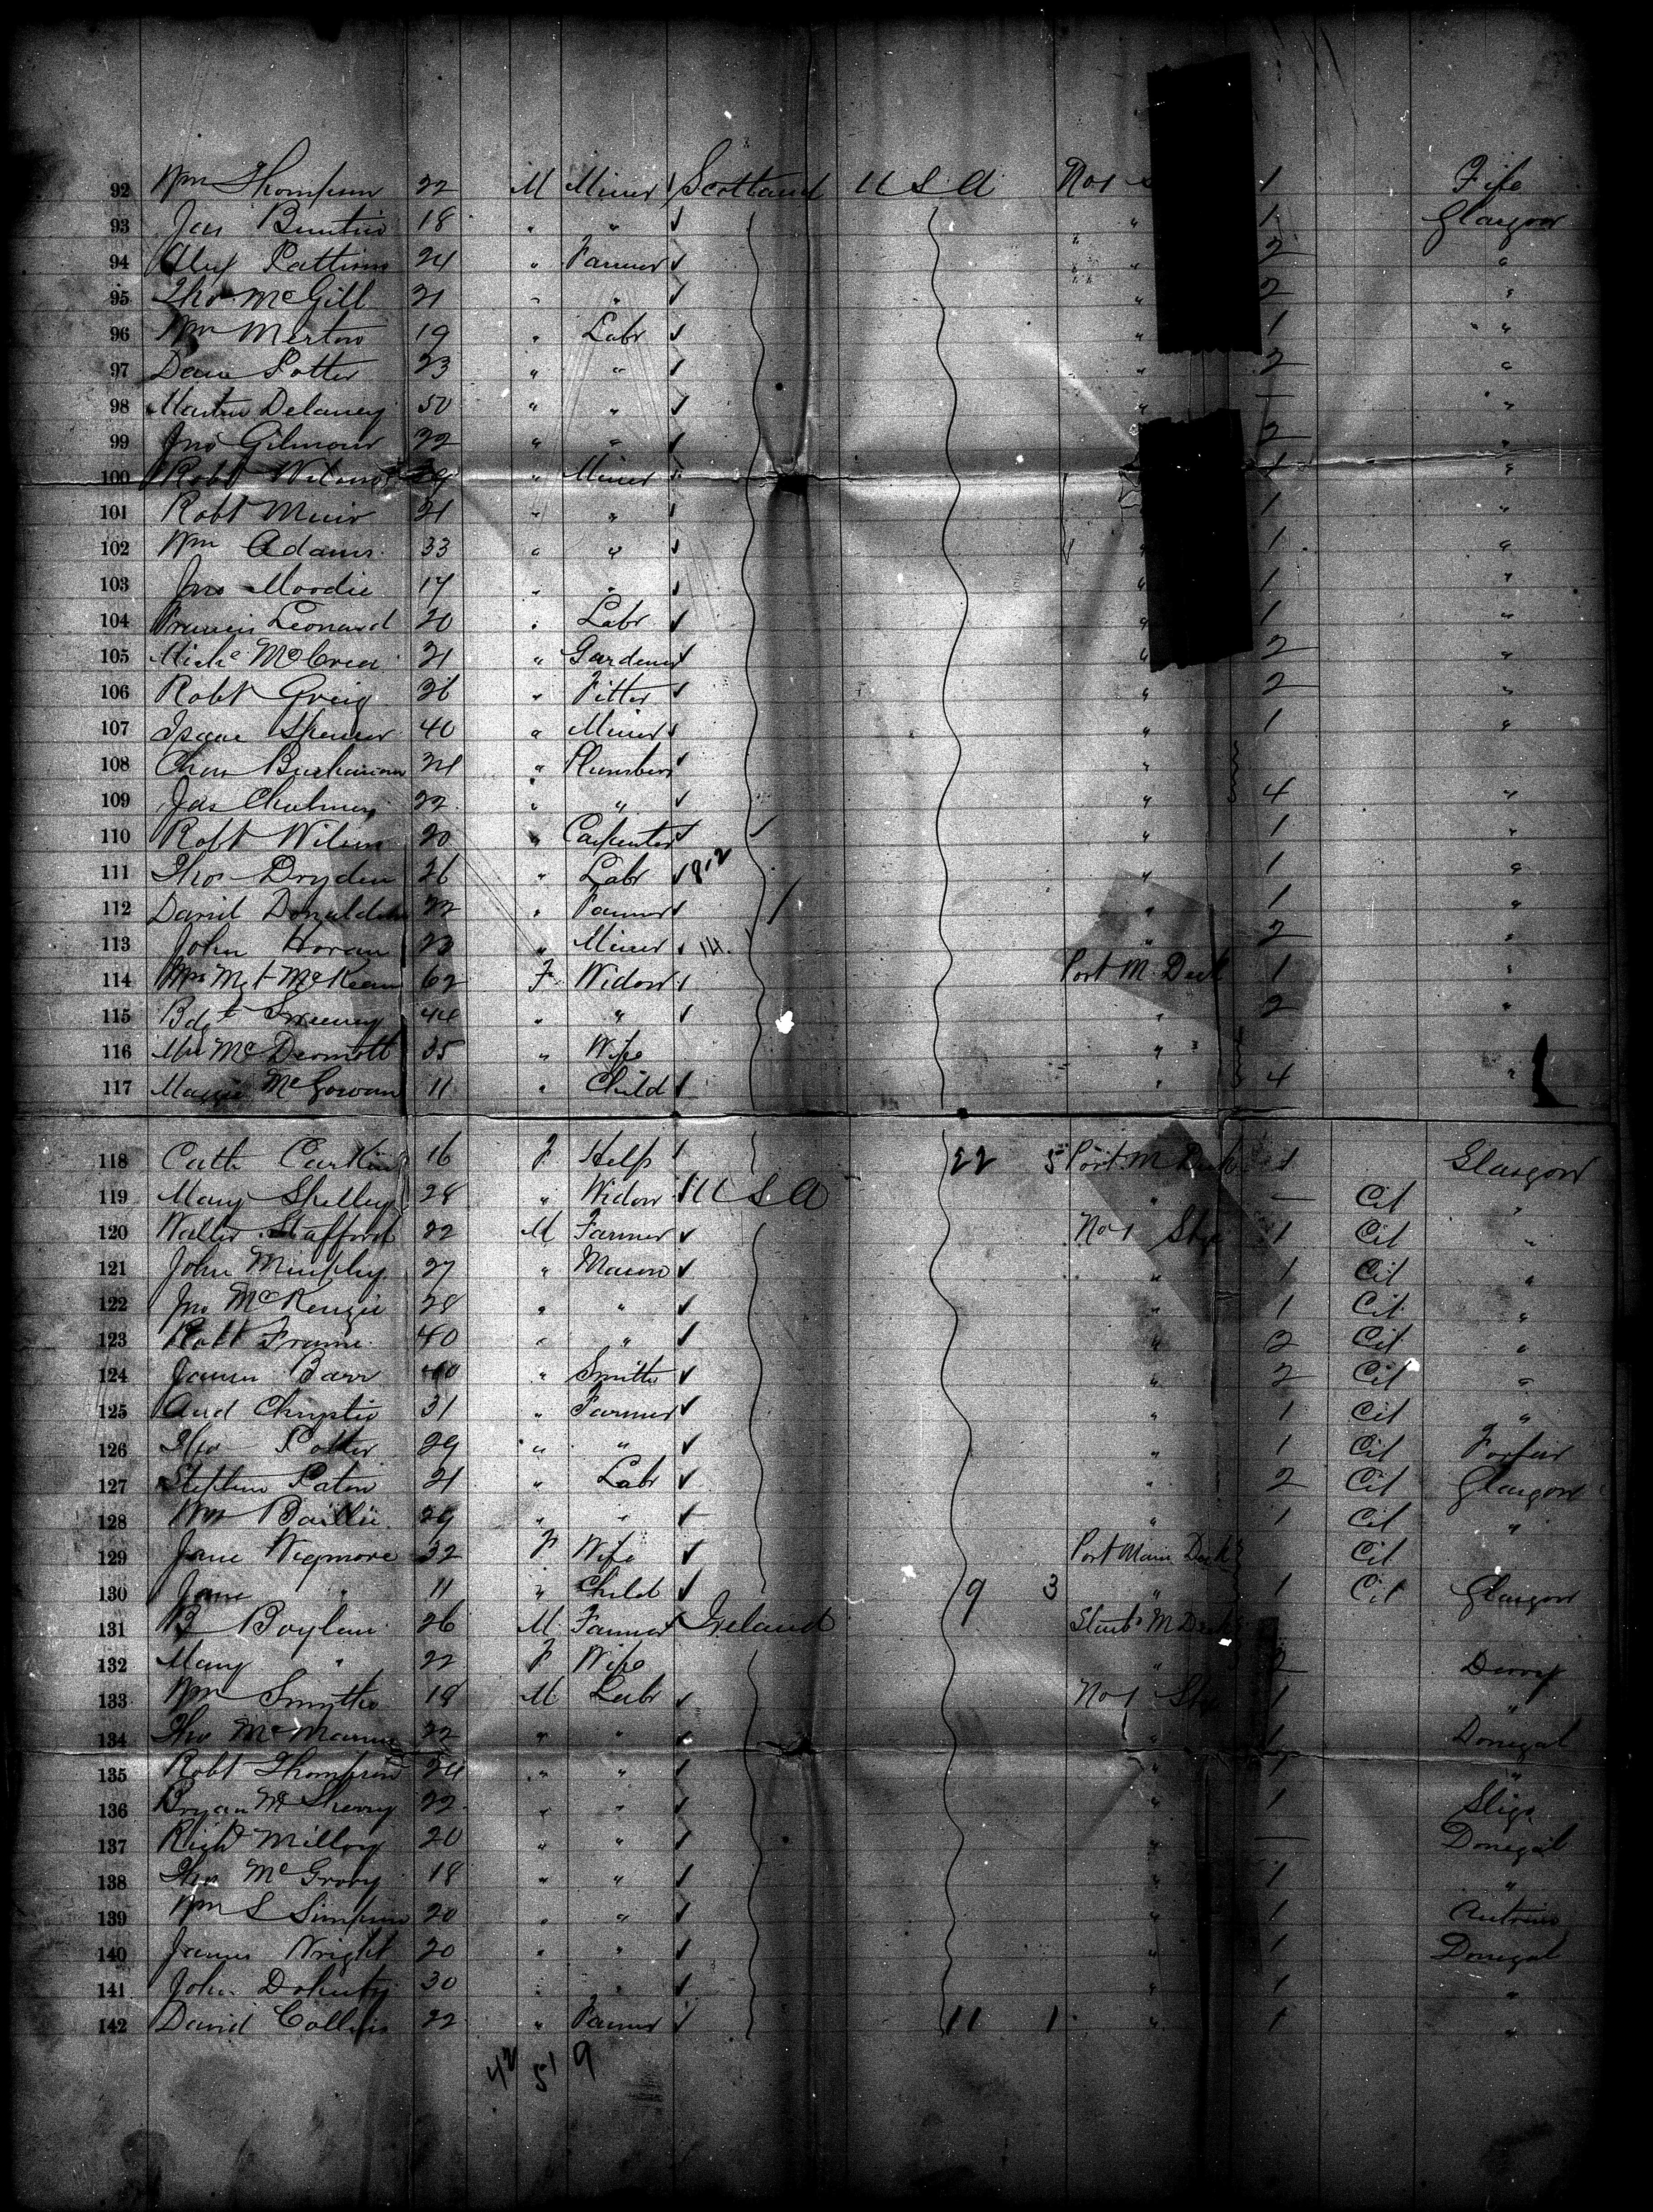 92 Wm Thompson 22 M Miner Scotland U S A No 1 1 Fife
93 Jas 18 " " " 1 Glasgow
94 Alex 24 " Farmer " 2 "
95 Tho McGill 21 " " " 2 "
96 Wm 19 " Labr " 1 "
97 Potter 23 " " " 2 "
98 Martin Delaney 50 " " " — "
99 Jno Gilmour 22 " " " 2 "
100 Robt " Miner 1 "
101 Robt Muir 21 " " 1 "
102 Wm Adams 33 " " " 1 "
103 Jno Moodie 17 " " " 1 "
104 Francis Leonard 20 " Labr " 1 "
105 Michl McCrea 21 " Gardener " 2 "
106 Robt Greig 26 " Fitter " 2 "
107 Isaac Spencer 40 " Miner " 1 "
108 Chas Buchanan 24 " Plumber "
109 Jas Chalmers 22 " " " 4 "
110 Robt Wilson 20 " Carpenter " 1 "
111 Thos Dryden 26 " Labr " 1 "
112 David Donaldson 22 " Farmer " 1 "
113 John Horan 23 " Miner 14 " 2 "
114 Mrs Mgt McKean 62 F Widow Port M. Deck 1 "
115 Bdgt Sweeney 44 " " " 2 "
116 Mrs McDermott 35 " Wife "
117 Maggie McGowan 11 " Child " 4 "
118 Cath 16 F Help 22 5 Port M Deck 1 Glasgow
119 Mary Shelley 28 " Widow U S A " — Cit "
120 Walter Stafford 22 M Farmer No 1 Stge 1 Cit "
121 John Murphy 27 " Mason " 1 Cit "
122 Jno McKenzie 28 " " " 1 Cit "
123 Robt Frame 40 " " " 2 Cit "
124 James Barr 40 " Smith " 2 Cit "
125 And Chrystie 31 " Farmer " 1 Cit "
126 Tho Potter 29 " " " 1 Cit Forfar
127 Stephen Paton 21 " Labr " 2 Cit Glasgow
128 Wm Baillie 29 " " " 1 Cit "
129 Jane Wegmore 32 F Wife Port Main Deck Cit
130 Jane " 11 " Child 9 3 " 1 Cit Glasgow
131 B Boylan 26 M Farmer Ireland Starb M Deck
132 Mary " 22 F Wife " 2 Derry
133 Wm Smythe 18 M Labr No 1 Stge 1 "
134 Tho McManus 22 " " " 1 Donegal
135 Robt Thompson 24 " " " 1 "
136 Bryan McSherry 22 " " " 1 Sligo
137 Richd 20 " " " — Donegal
138 Tho 18 " " " 1 "
139 Wm S Simpson 20 " " " 1 Antrim
140 James Wright 20 " " " 1 Donegal
141 John Doherty 30 " " " 1 "
142 David Collins 22 " Farmer 11 1 " 1 "
42 51 9